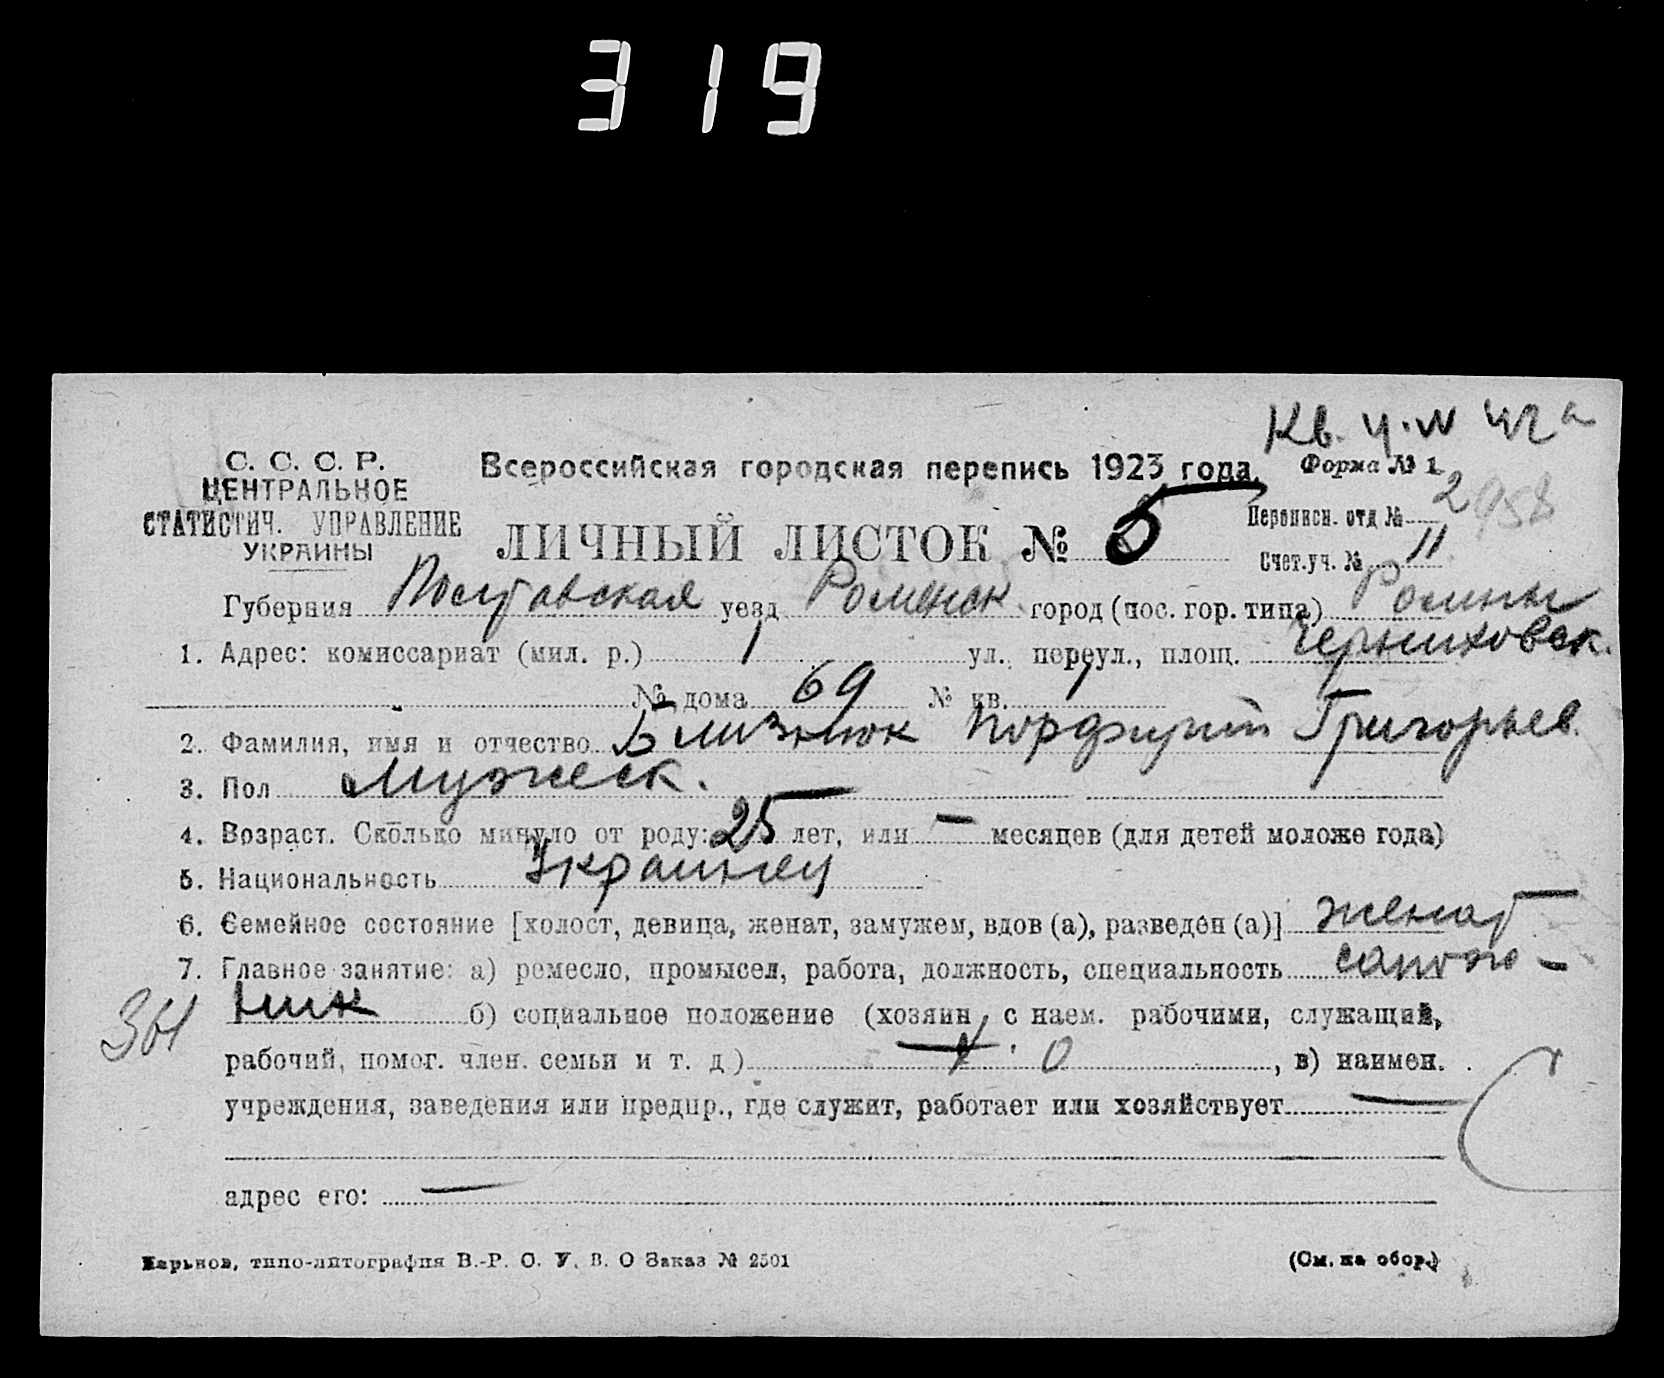 319
Кв.
С. С. С. Р.
ЦЕНТРАЛЬНОЕ
СТАТИСТИЧ. УПРАВЛЕНИЕ
УКРАИНЫ
Всероссийская городская перепись 1923 года.
Форма № 1
ЛИЧНЫЙ ЛИСТОК № 5
Переписн. отд № 2 958
Счет.уч. № 11
Губерния Полтавская уезд Роменск. город (пос. гор. типа) Ромны
1. Адрес: комиссариат (мил. р.) 1 ул., переул., площ. Черниховск.
№ дома 69 № кв. 1
2. Фамилия, имя и отчество Близнюк Порфирий Григорьев.
3. Пол Мужеск.
4. Возраст. Сколько минуло от роду: 25 лет, или — месяцев (для детей моложе года)
5. Национальность Украинец
6. Семейное состояние [холост, девица, женат, замужем, вдов (а), разведен (а)] женат
7. Главное занятие: а) ремесло, промысел, работа, должность, специальность сапож-
ник б) социальное положение (хозяин с наем. рабочими, служащий,
361
рабочий, помог. член. семьи и т. д) О , в) наимен.
учреждения, заведения или предпр., где служит, работает или хозяйствует —
адрес его: —
Харьков, типо-литография В.-Р. С. У. В. О Заказ № 2501
(См. на обор.)